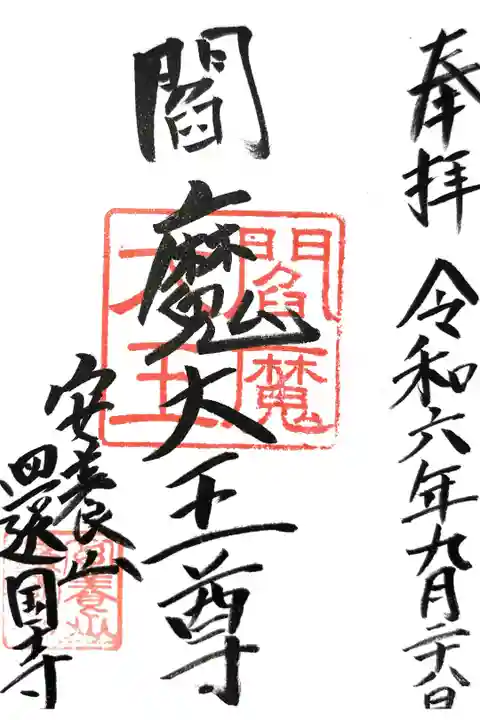 奉拝 令和六年九月二十八日
閻魔大王尊
閻魔
大王
安養山
還国寺
安養山